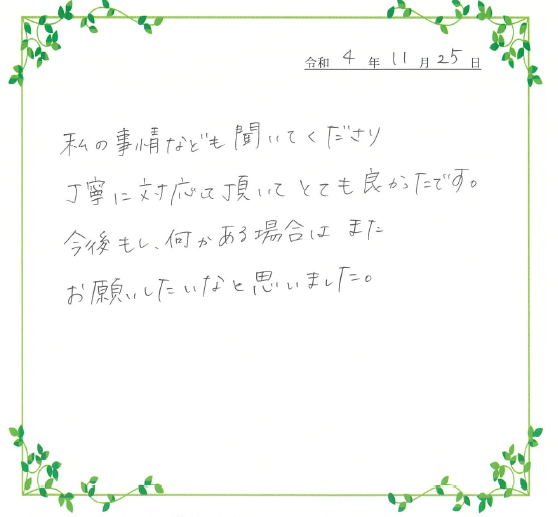 令和 4 年 11 月 25 日
私の事情なども聞いてくださり
丁寧に対応して頂いてとても良かったです。
今後もし、何かある場合はまた
お願いしたいなと思いました。